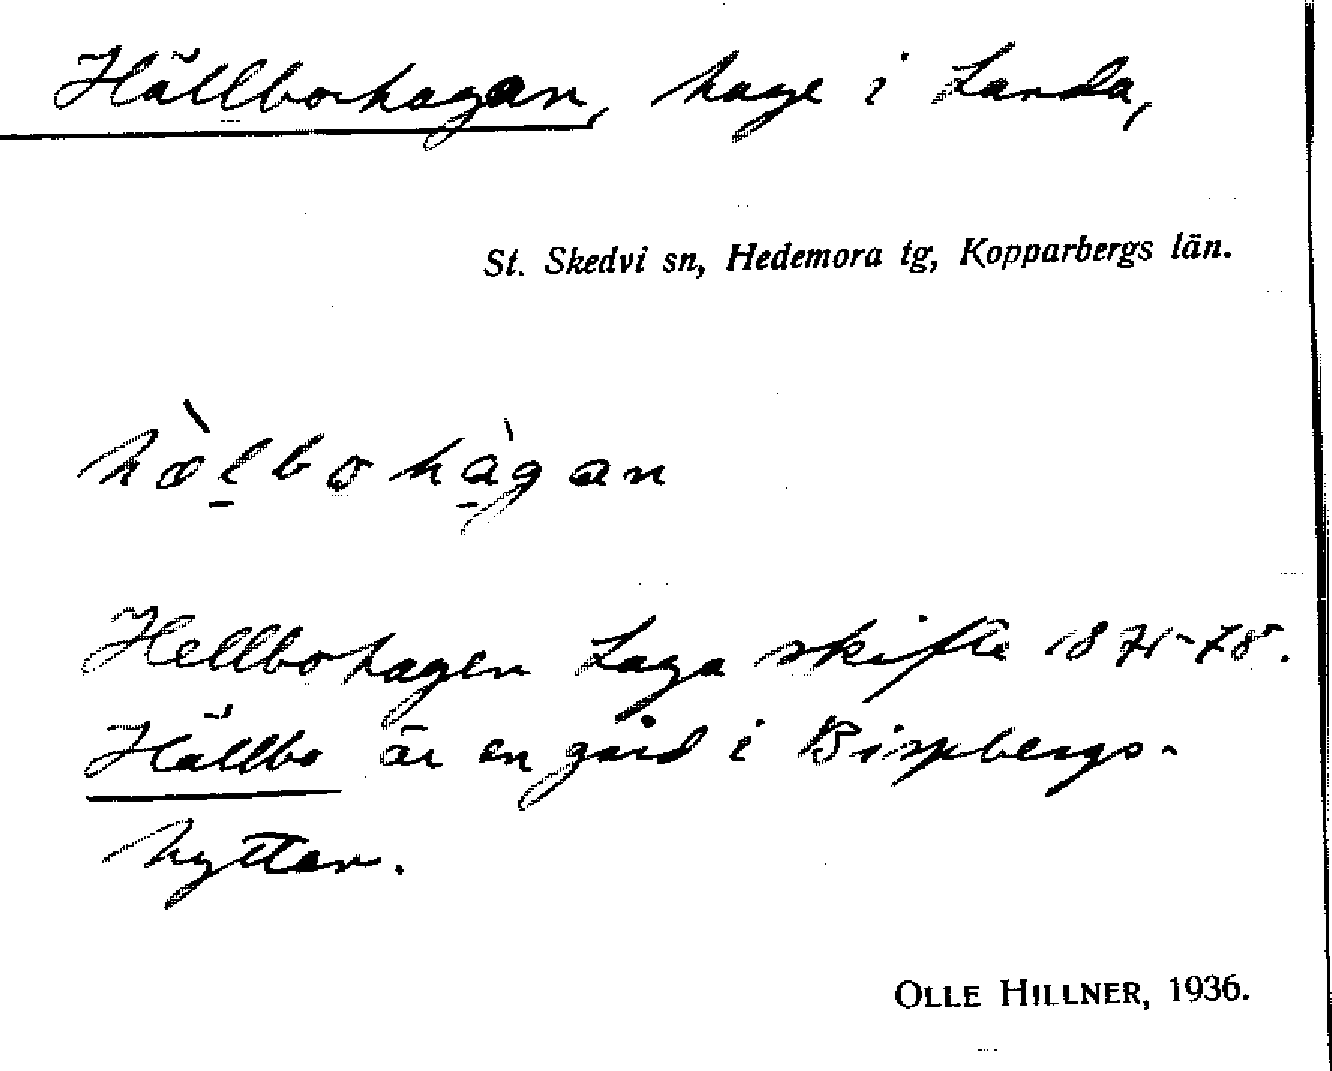 Hällbohagan, hage i Landa,
St. Skedvi sn, Hedemora tg, Kopparbergs län.
hælbohàgan
Hellbohagen Laga skifte 1871-78.
Hällbo är en gård i Bispbergs-
hyttan.
OLLE HILLNER, 1936.